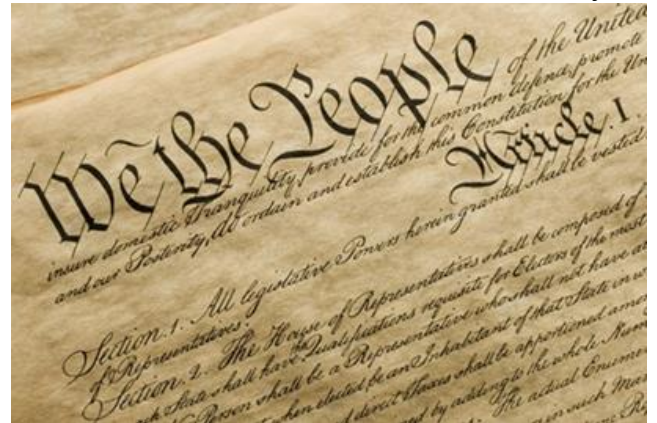 We the People of the United
insure domestic Tranquility, provide for the common defence, promote
and our Posterity, do ordain and establish this Constitution for the Un
Article. I.
Section. 1. All legislative Powers herein granted shall be vested
of Representatives.
Section. 2. The House of Representatives shall be composed of
ach State shall have Qualifications requisite for Electors of the most
Person shall be a Representative who shall not have at
when elected, be an Inhabitant of that State in w
and direct Taxes shall be apportioned amon
by adding to the whole Num
The actual Enumer
in such Man